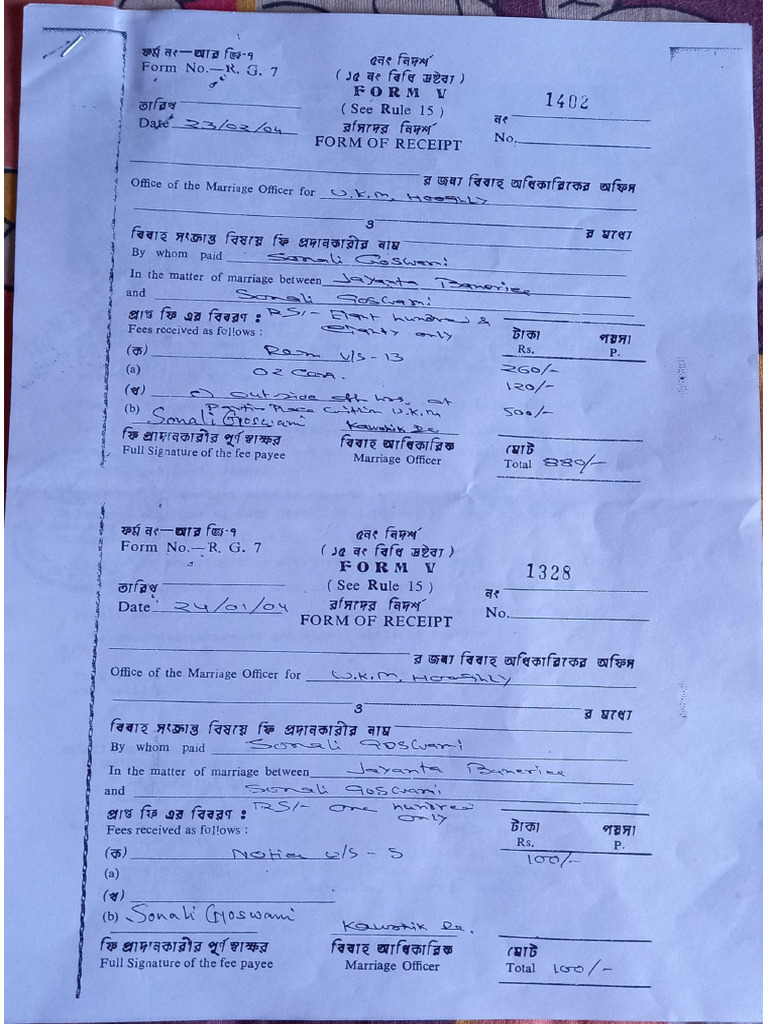 ফর্ম নং—আর জি-৭
Form No.—R. G. 7
৫নং নিদর্শ
( ১৫ নং বিধি দ্রষ্টব্য )
FORM V
( See Rule 15 )
রসিদের নিদর্শ
FORM OF RECEIPT
1402
তারিখ
Date 23/02/04
নং
No.
র জন্য বিবাহ অধিকারিকের অফিস
Office of the Marriage Officer for U.K.M, Hooghly
ও
র মধ্যে
বিবাহ সংক্রান্ত বিষয়ে ফি প্রদানকারীর নাম
By whom paid Sonali Goswami
In the matter of marriage between Jayanta Banerjee
and Sonali Goswami
প্রাপ্ত ফি এর বিবরণ : RS/- Eight hundred &
Fees received as follows : eighty only
টাকা পয়সা
Rs. P.
(ক) U/S-13 260/-
(a) 02 120/-
(খ) outside at
(b) within U.K.M 500/-
Sonali Goswami Kaushik De
ফি প্রদানকারীর পূর্ণ স্বাক্ষর বিবাহ আধিকারিক মোট
Full Signature of the fee payee Marriage Officer Total 880/-
ফর্ম নং—আর জি-৭
Form No.—R. G. 7
৫নং নিদর্শ
( ১৫ নং বিধি দ্রষ্টব্য )
FORM V
( See Rule 15 )
রসিদের নিদর্শ
FORM OF RECEIPT
1328
তারিখ
Date 24/01/04
নং
No.
র জন্য বিবাহ অধিকারিকের অফিস
Office of the Marriage Officer for U.K.M, Hooghly
ও
র মধ্যে
বিবাহ সংক্রান্ত বিষয়ে ফি প্রদানকারীর নাম
By whom paid Sonali Goswami
In the matter of marriage between Jayanta Banerjee
and Sonali Goswami
প্রাপ্ত ফি এর বিবরণ : RS/- one hundred
Fees received as follows : only
টাকা পয়সা
Rs. P.
(ক) Notice U/S - 5 100/-
(a)
(খ)
(b) Sonali Goswami Kaushik De.
ফি প্রদানকারীর পূর্ণ স্বাক্ষর বিবাহ আধিকারিক মোট
Full Signature of the fee payee Marriage Officer Total 100/-